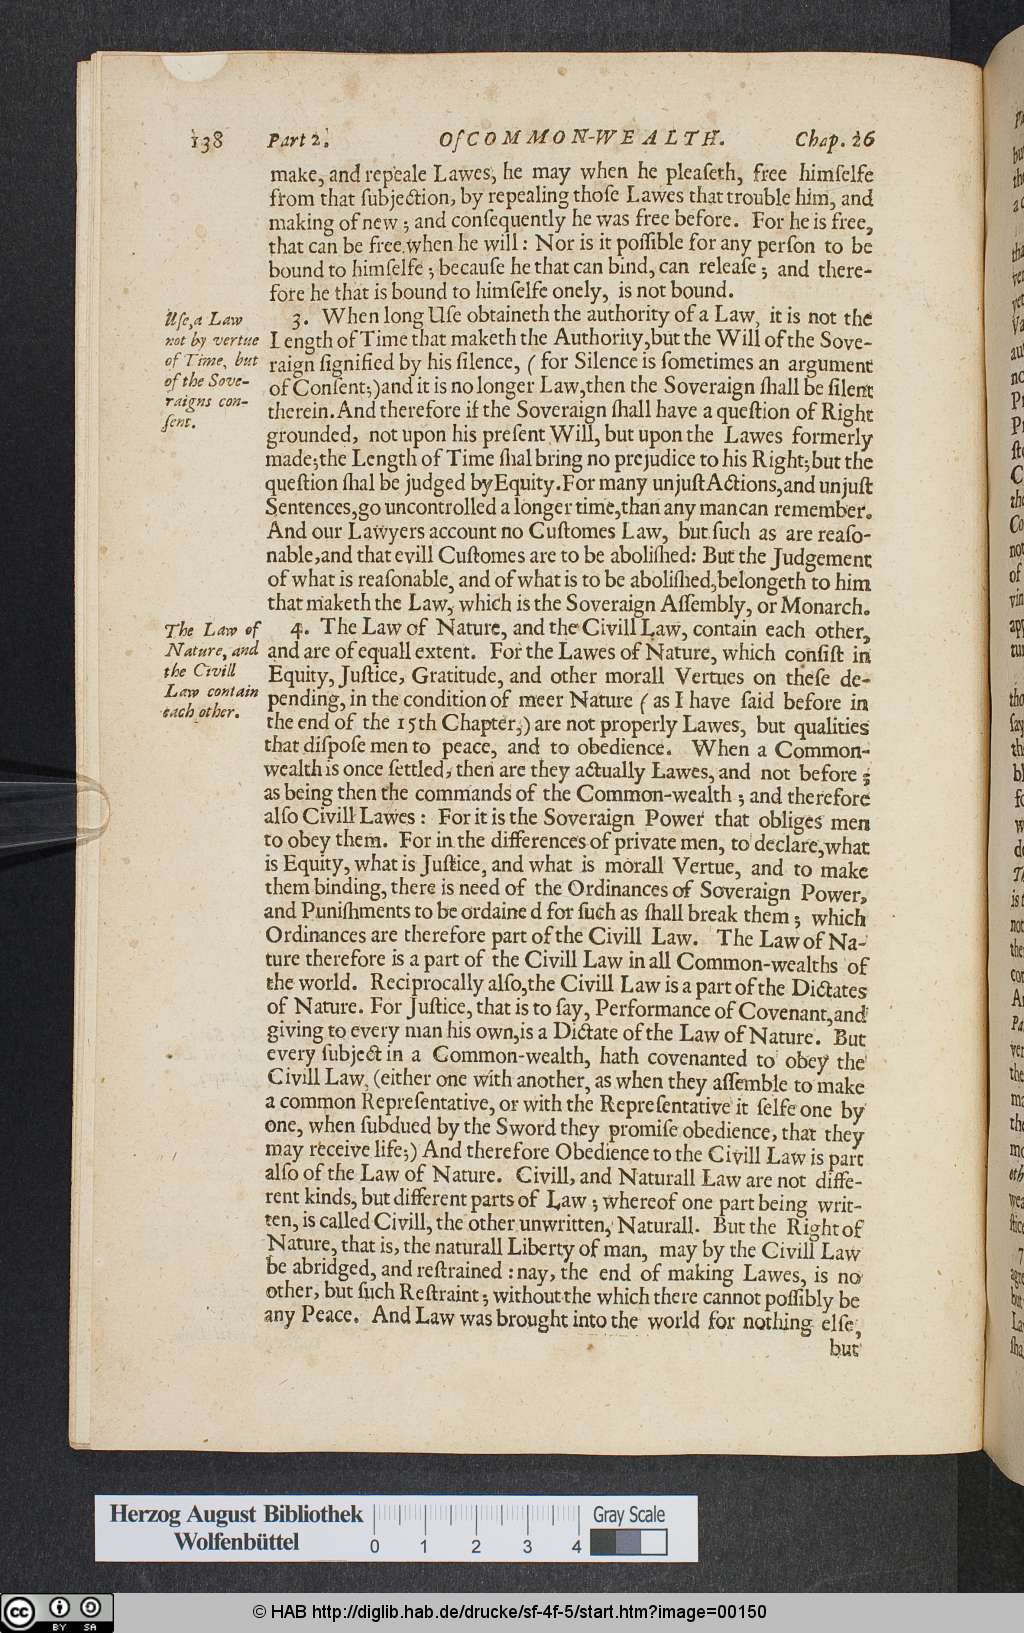 138 Part 2. Of COMMON-WEALTH. Chap. 26
make, and repeale Lawes, he may when he pleaſeth, free himſelfe
from that ſubjection, by repealing thoſe Lawes that trouble him, and
making of new ; and conſequently he was free before. For he is free,
that can be free when he will : Nor is it poſſible for any perſon to be
bound to himſelfe ; becauſe he that can bind, can releaſe ; and there-
fore he that is bound to himſelfe onely, is not bound.
Uſe, a Law
not by vertue
of Time, but
of the Sove-
raigns con-
ſent.
3. When long Uſe obtaineth the authority of a Law, it is not the
Length of Time that maketh the Authority, but the Will of the Sove-
raign ſignified by his ſilence, ( for Silence is ſometimes an argument
of Conſent;) and it is no longer Law, then the Soveraign ſhall be ſilent
therein. And therefore if the Soveraign ſhall have a queſtion of Right
grounded, not upon his preſent Will, but upon the Lawes formerly
made; the Length of Time ſhal bring no prejudice to his Right; but the
queſtion ſhal be judged by Equity. For many unjuſt Actions, and unjuſt
Sentences, go uncontrolled a longer time, than any man can remember.
And our Lawyers account no Cuſtomes Law, but ſuch as are reaſo-
nable, and that evill Cuſtomes are to be aboliſhed: But the Judgement
of what is reaſonable, and of what is to be aboliſhed, belongeth to him
that maketh the Law, which is the Soveraign Aſſembly, or Monarch.
The Law of
Nature, and
the Civill
Law contain
each other.
4. The Law of Nature, and the Civill Law, contain each other,
and are of equall extent. For the Lawes of Nature, which conſiſt in
Equity, Juſtice, Gratitude, and other morall Vertues on theſe de-
pending, in the condition of meer Nature ( as I have ſaid before in
the end of the 15th Chapter,) are not properly Lawes, but qualities
that diſpoſe men to peace, and to obedience. When a Common-
wealth is once ſettled, then are they actually Lawes, and not before ;
as being then the commands of the Common-wealth ; and therefore
alſo Civill Lawes : For it is the Soveraign Power that obliges men
to obey them. For in the differences of private men, to declare, what
is Equity, what is Juſtice, and what is morall Vertue, and to make
them binding, there is need of the Ordinances of Soveraign Power,
and Puniſhments to be ordaine d for ſuch as ſhall break them ; which
Ordinances are therefore part of the Civill Law. The Law of Na-
ture therefore is a part of the Civill Law in all Common-wealths of
the world. Reciprocally alſo, the Civill Law is a part of the Dictates
of Nature. For Juſtice, that is to ſay, Performance of Covenant, and
giving to every man his own, is a Dictate of the Law of Nature. But
every ſubject in a Common-wealth, hath covenanted to obey the
Civill Law, (either one with another, as when they aſſemble to make
a common Repreſentative, or with the Repreſentative it ſelfe one by
one, when ſubdued by the Sword they promiſe obedience, that they
may receive life;) And therefore Obedience to the Civill Law is part
alſo of the Law of Nature. Civill, and Naturall Law are not diffe-
rent kinds, but different parts of Law ; whereof one part being writ-
ten, is called Civill, the other unwritten, Naturall. But the Right of
Nature, that is, the naturall Liberty of man, may by the Civill Law
be abridged, and reſtrained : nay, the end of making Lawes, is no
other, but ſuch Reſtraint ; without the which there cannot poſſibly be
any Peace. And Law was brought into the world for nothing elſe,
but
Herzog August Bibliothek
Wolfenbüttel
0 1 2 3 4
Gray Scale
cc BY SA
© HAB http://diglib.hab.de/drucke/sf-4f-5/start.htm?image=00150